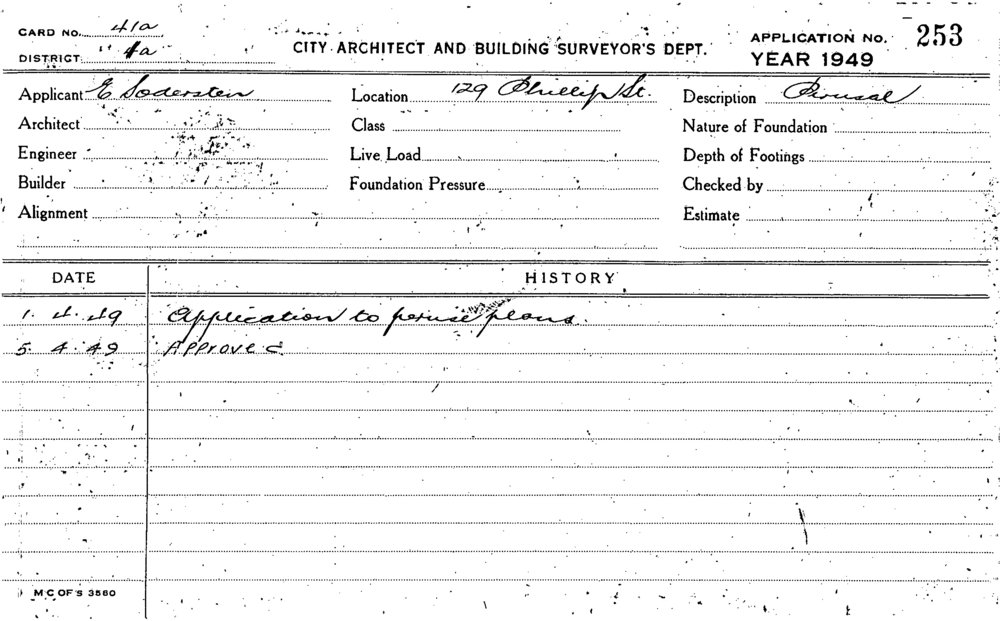 CARD NO. 41a
DISTRICT " 4a
CITY ARCHITECT AND BUILDING SURVEYOR'S DEPT.
APPLICATION NO. 253
YEAR 1949
Applicant E Sodersten Location 129 Phillip St. Description Perusal
Architect Class Nature of Foundation
Engineer Live Load Depth of Footings
Builder Foundation Pressure Checked by
Alignment Estimate
DATE HISTORY
1. 4. 49 Application to peruse plans.
5. 4. 49 Approved.
M C OF S 3580